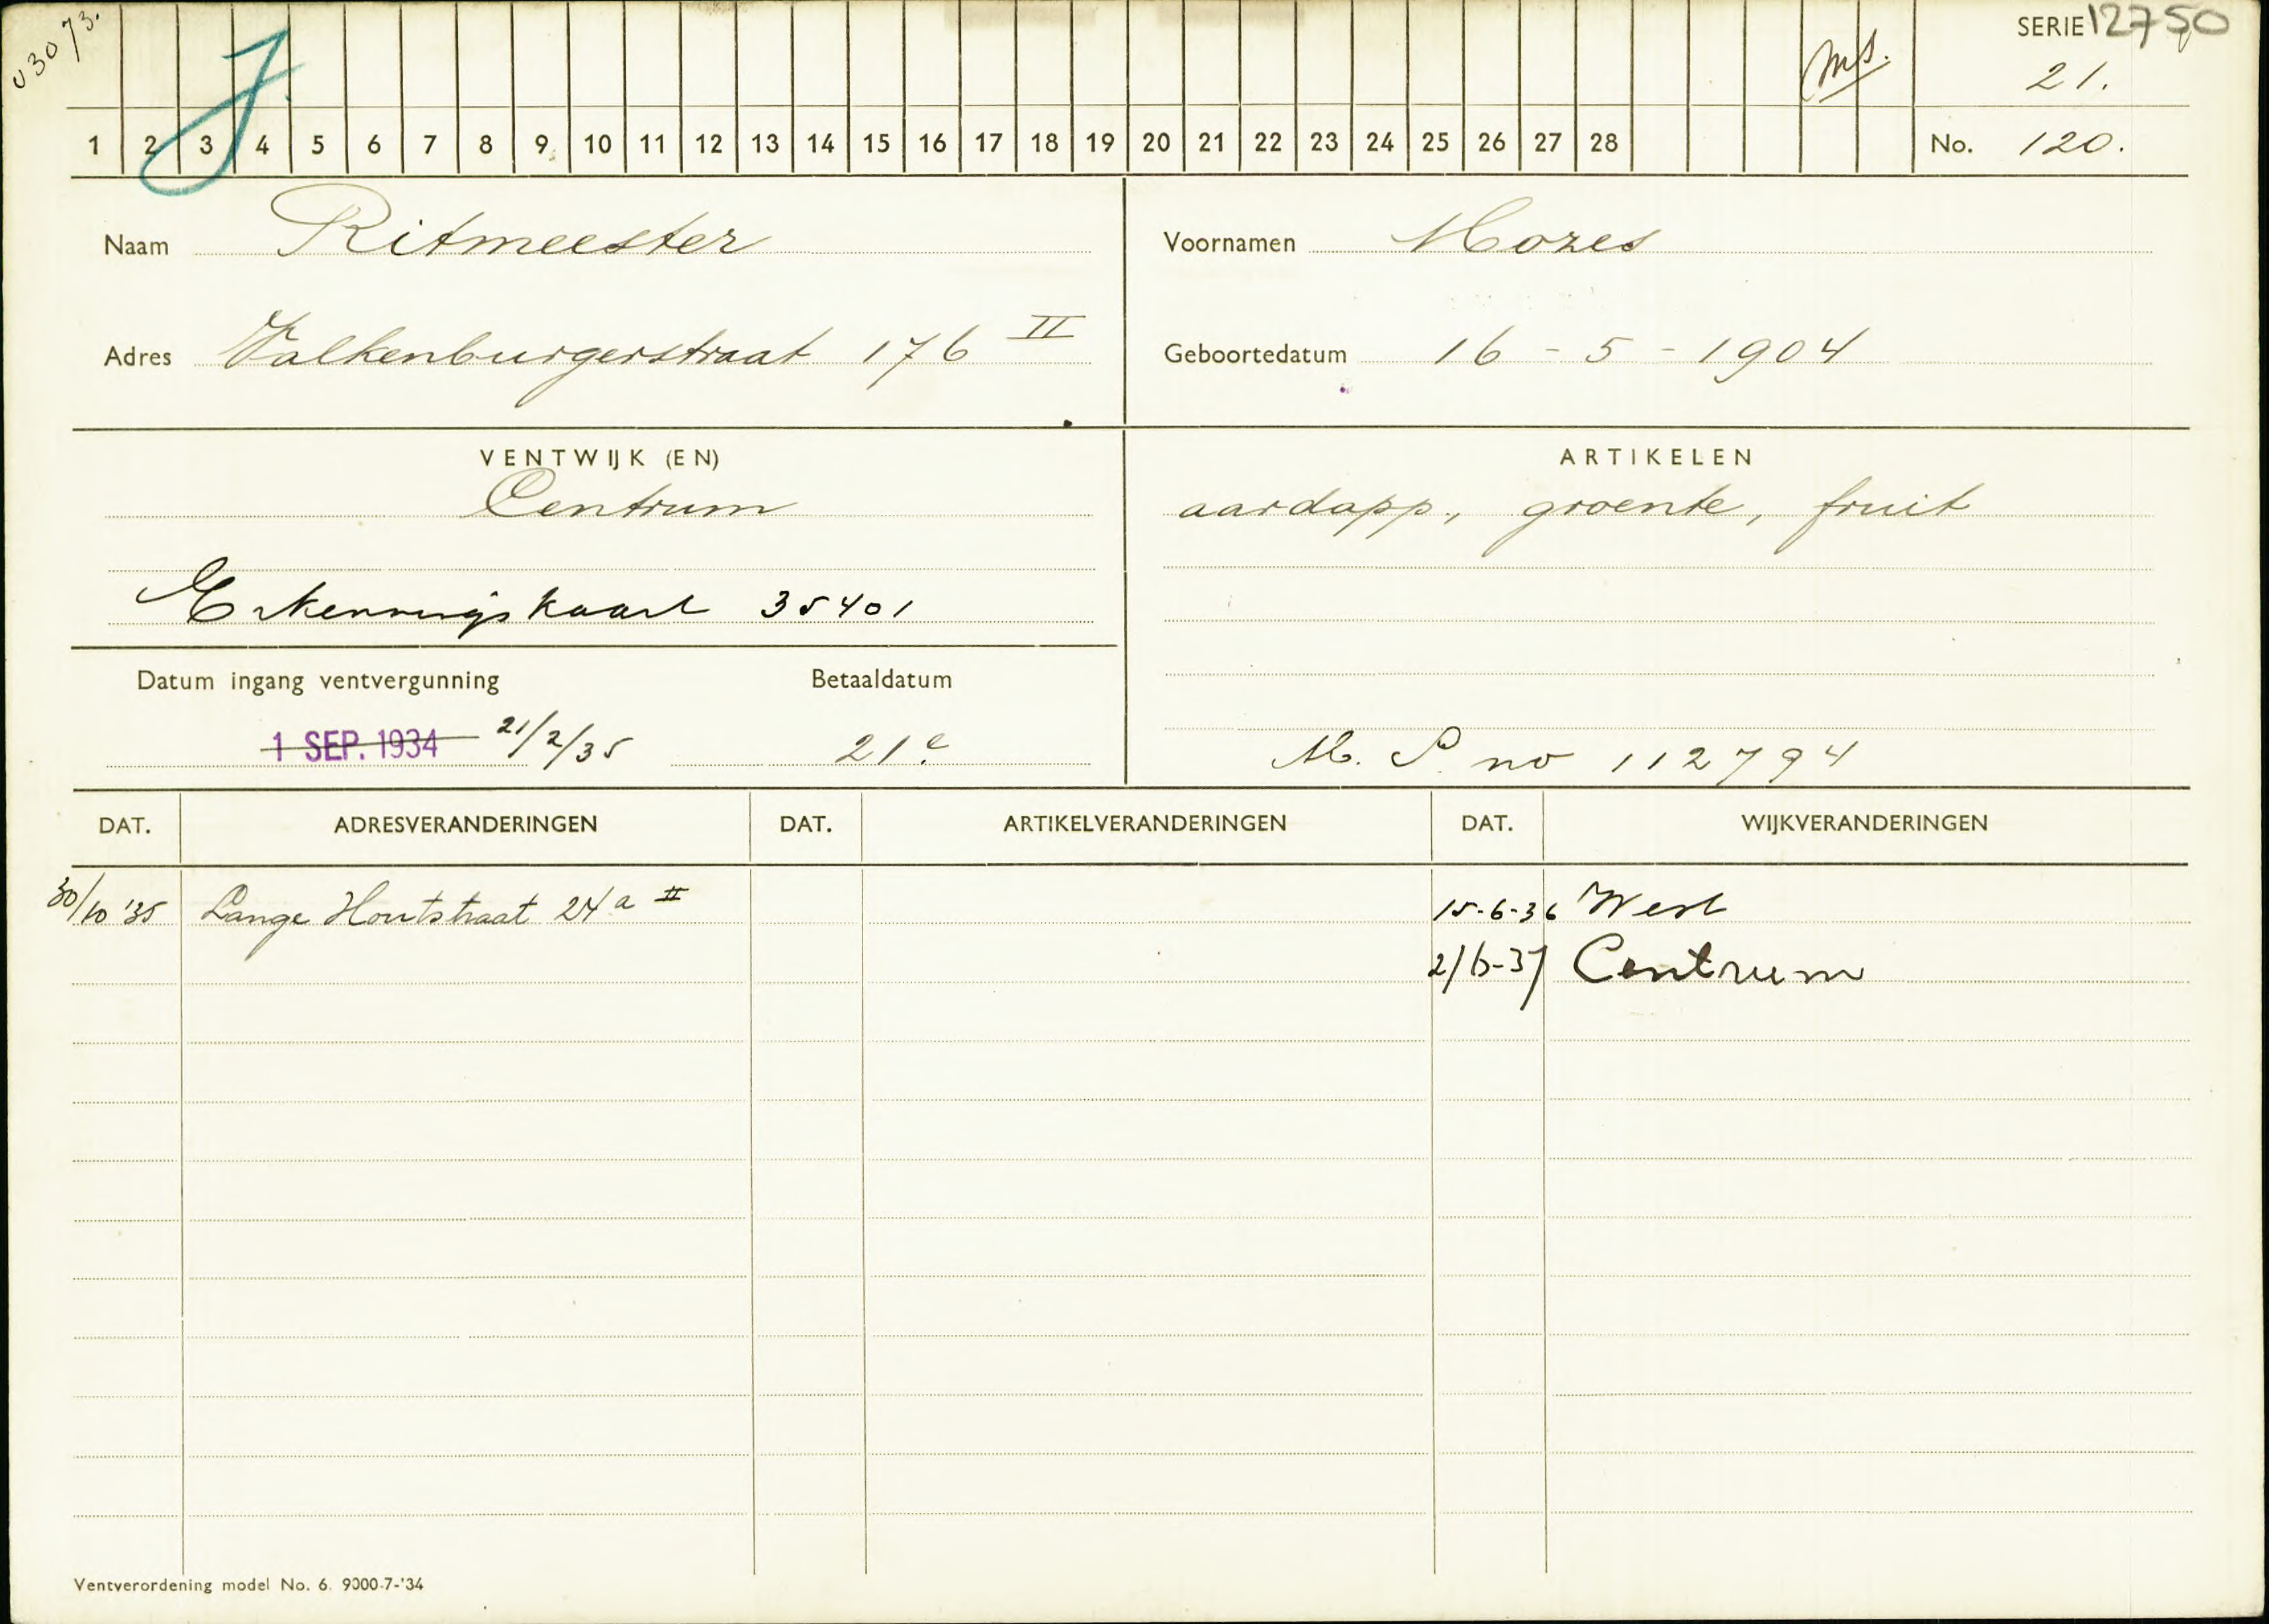 03073.
J
ms.
SERIE 12750
21.
1 2 3 4 5 6 7 8 9 10 11 12 13 14 15 16 17 18 19 20 21 22 23 24 25 26 27 28
No. 120.
Naam Ritmeester
Voornamen Mozes
Adres Valkenburgerstraat 176 II
Geboortedatum 16 - 5 - 1904
VENTWIJK (EN)
Centrum
Erkenningskaart 35401
ARTIKELEN
aardapp., groente, fruit
Datum ingang ventvergunning
Betaaldatum
1 SEP. 1934 21/2/35
21e
M. P. no 112794
DAT. ADRESVERANDERINGEN DAT. ARTIKELVERANDERINGEN DAT. WIJKVERANDERINGEN
30/10 '35 Lange Houtstraat 24 a II
15-6-36 West
Centrum
Ventverordening model No. 6. 9000-7-'34